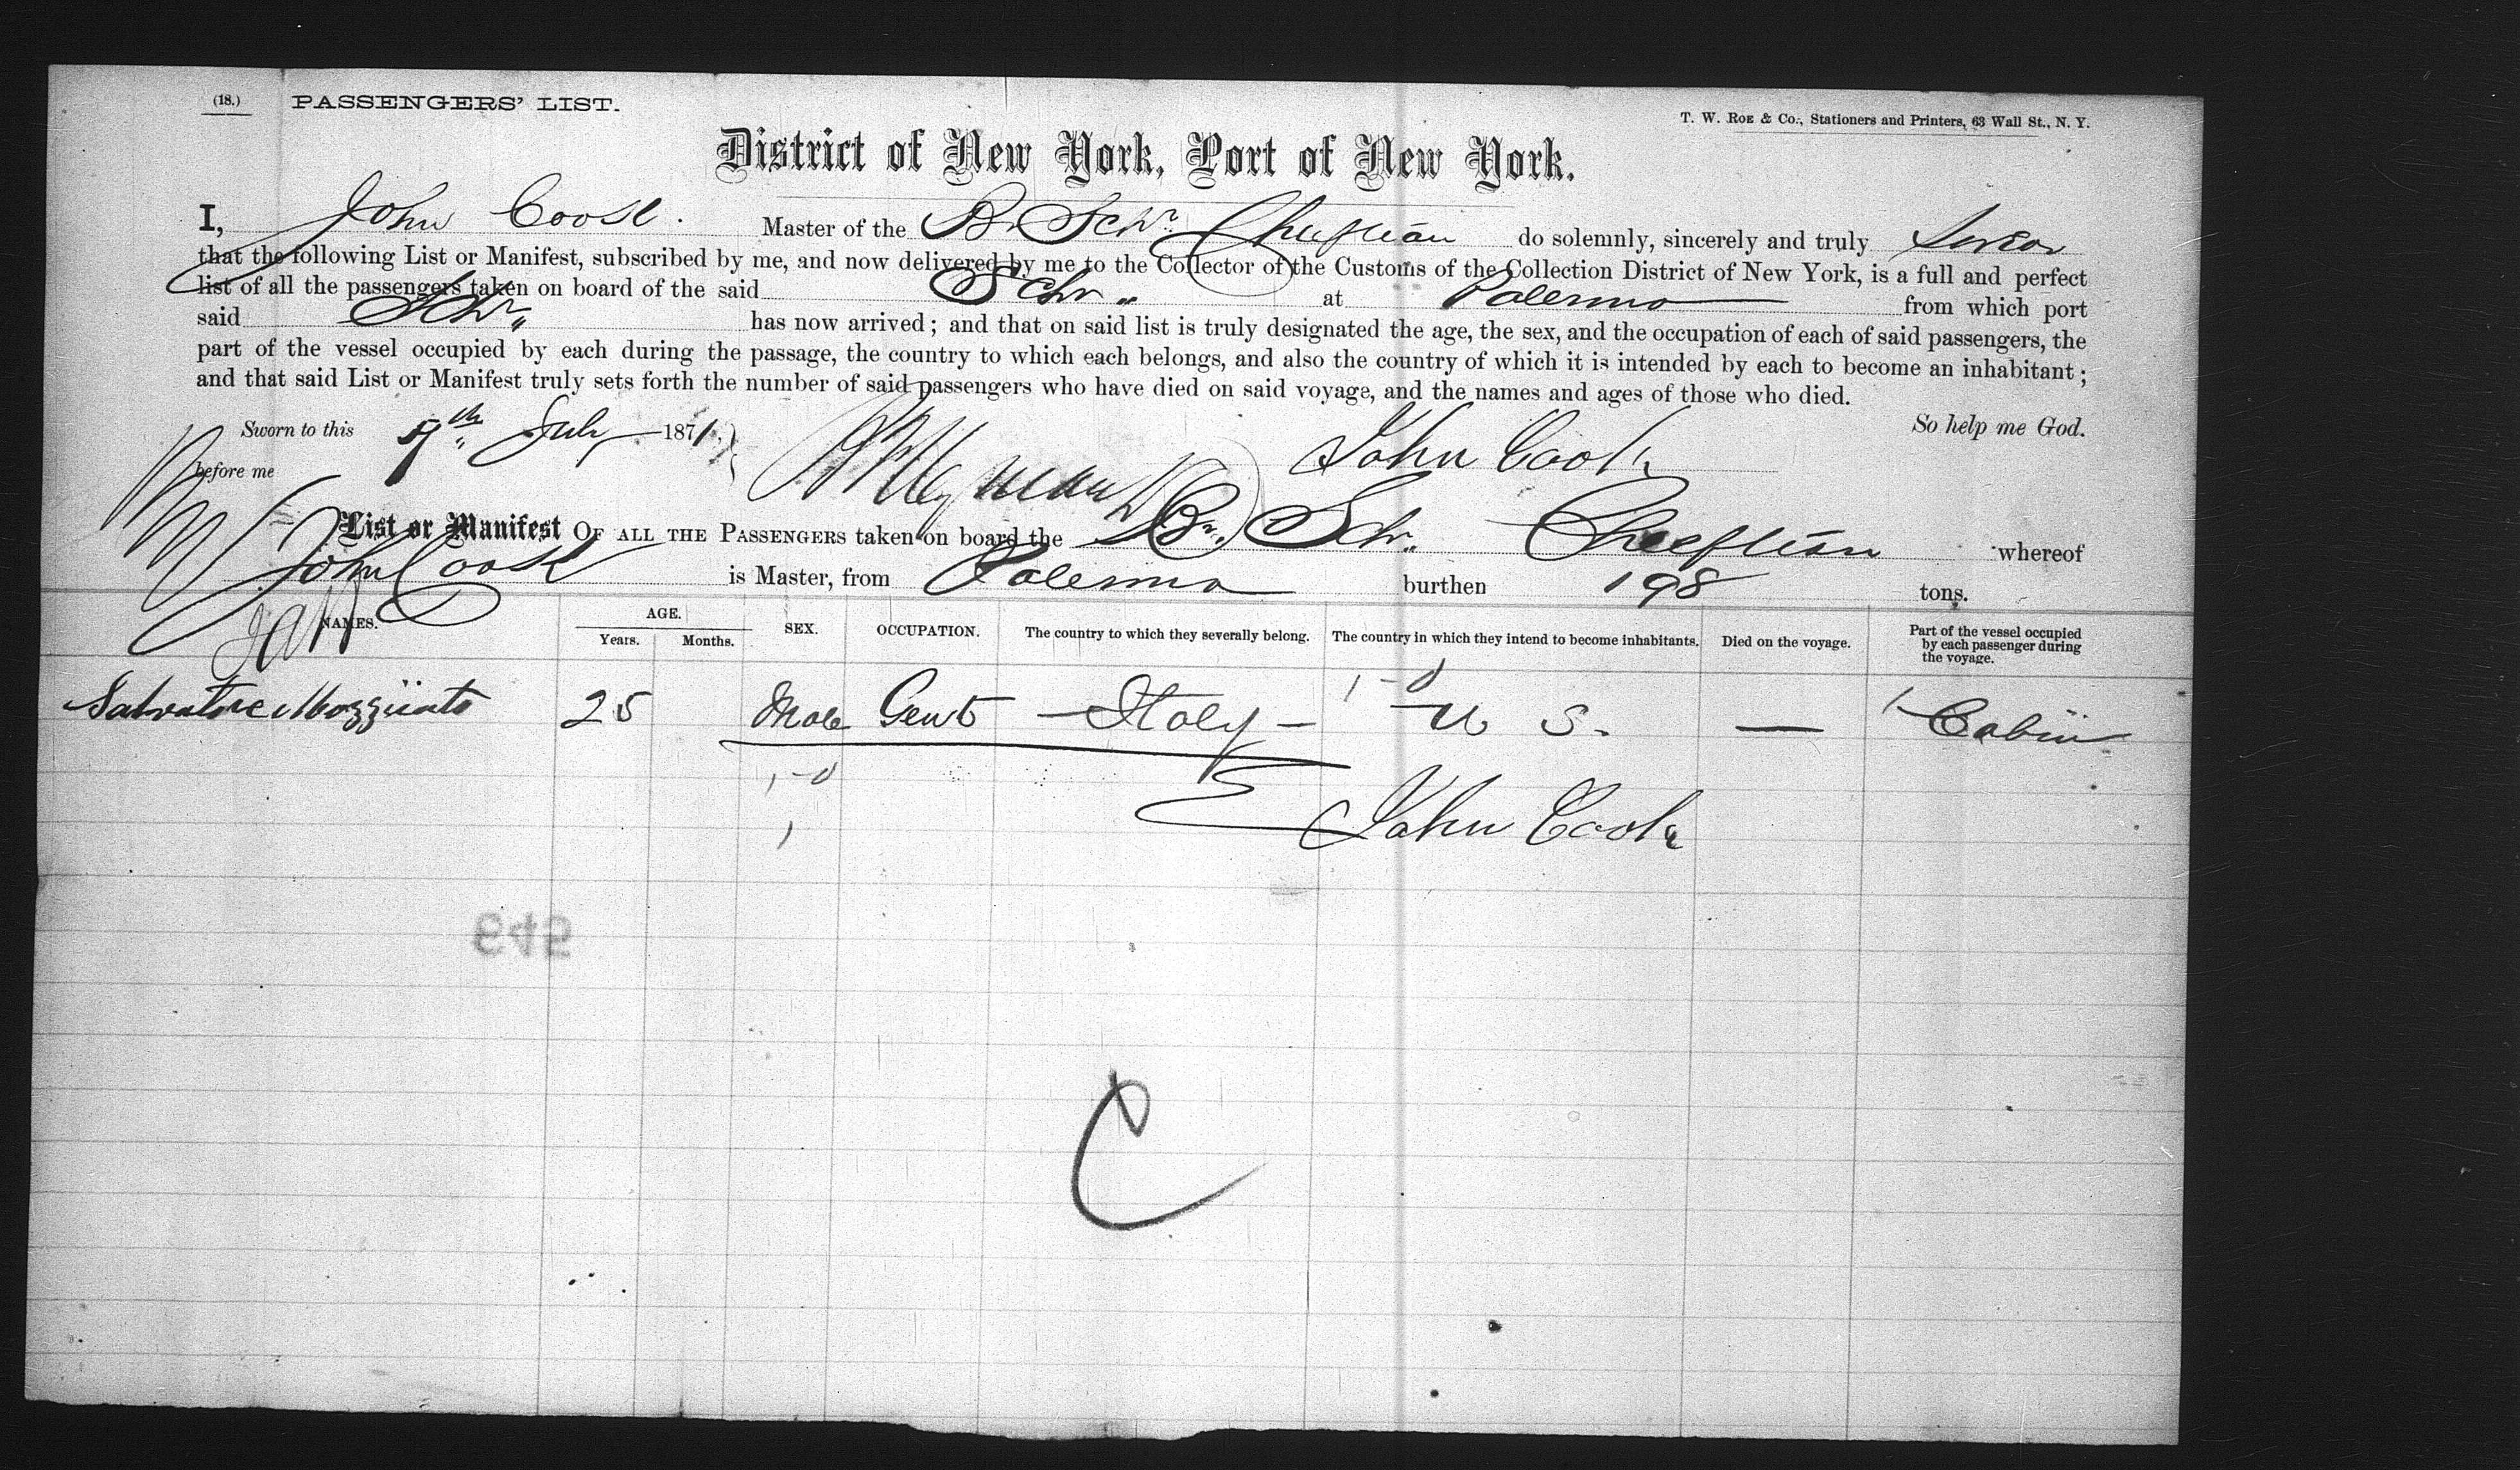 (18.) PASSENGERS' LIST.
T. W. ROE & Co., Stationers and Printers, 63 Wall St., N. Y.
District of New York, Port of New York.
I, John Cook. Master of the Br Schr. do solemnly, sincerely and truly swear
that the following List or Manifest, subscribed by me, and now delivered by me to the Collector of the Customs of the Collection District of New York, is a full and perfect
list of all the passengers taken on board of the said Schr " at Palermo from which port
said Schr " has now arrived; and that on said list is truly designated the age, the sex, and the occupation of each of said passengers, the
part of the vessel occupied by each during the passage, the country to which each belongs, and also the country of which it is intended by each to become an inhabitant;
and that said List or Manifest truly sets forth the number of said passengers who have died on said voyage, and the names and ages of those who died.
Sworn to this th July 1871. John Cook So help me God.
before me
List or Manifest OF ALL THE PASSENGERS taken on board the Br. Schr. whereof
John Cook is Master, from Palermo burthen 198 tons.
NAMES. AGE. Years. Months. SEX. OCCUPATION. The country to which they severally belong. The country in which they intend to become inhabitants. Died on the voyage. Part of the vessel occupied by each passenger during the voyage.
Salvatore 25 Male Gent — Italy — U S. — Cabin
John Cook
C